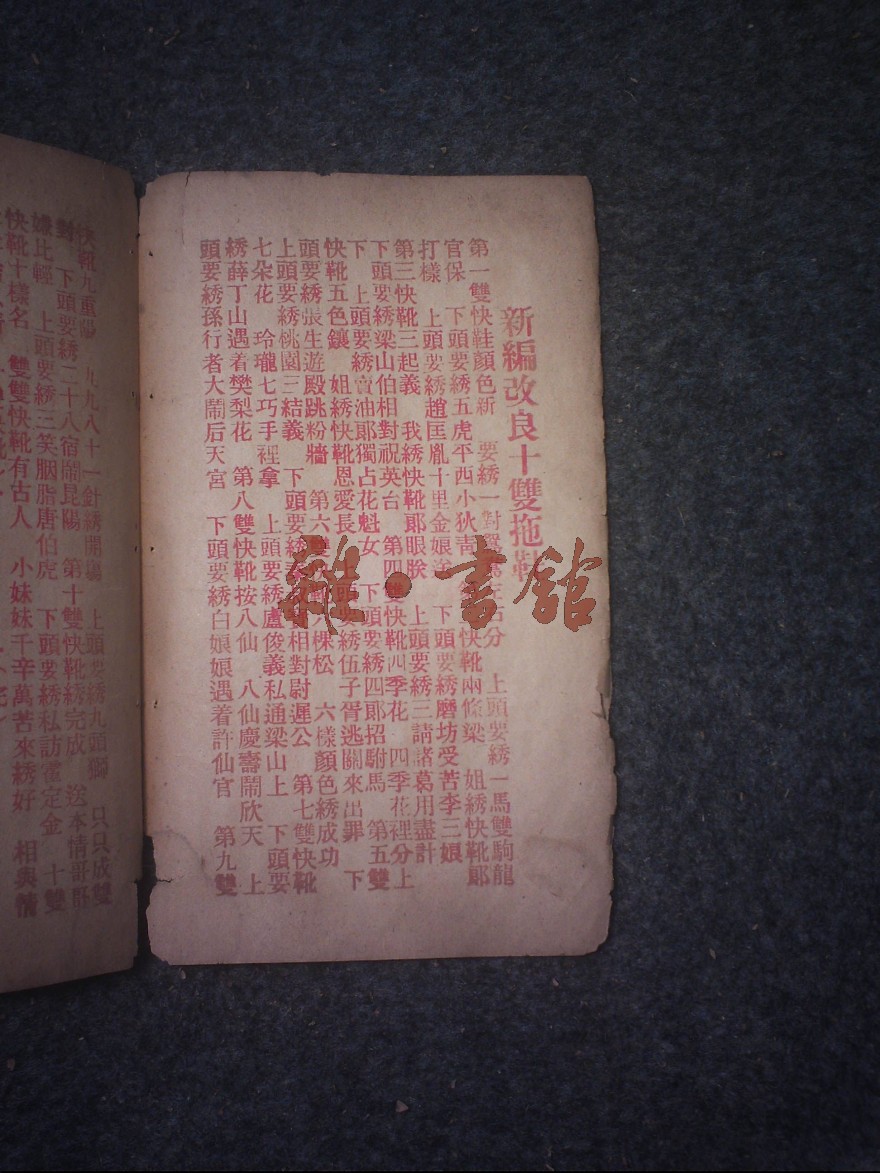 新編改良十雙拖鞋
第一雙快鞋顏色新 要綉一對 上頭要綉一馬雙駒龍
官保 下頭要綉五虎平西小狄青 快靴兩條梁 姐綉快靴郎
打樣 上頭要綉趙匡胤十里金娘送 下頭要綉磨坊受苦李三娘
第三快靴三起義 我綉快靴郎眼 上頭要綉三請諸葛用盡計
下頭要綉梁山伯相對祝英台 第四雙快靴四季花 四季花裡分上
下 上頭要綉賣油郎獨占花魁女 下頭要綉四郎招駙馬 第五雙
快靴五色鑲 姐綉快靴恩愛長 上頭要綉伍子胥逃關來出罪 下
頭要綉張生遊殿跳粉牆 第六雙 六棵松 六樣顏色綉成功
上頭要綉桃園三結義 下頭要綉 相對尉遲公 第七雙快靴
七朵花 玲瓏七巧手裡拿 上頭要綉盧俊義私通梁山上 下頭要
綉薛丁山遇着樊梨花 第八雙快靴按八仙 八仙慶壽鬧欣天 上
頭要綉孫行者大鬧后天宮 下頭要綉白娘娘遇着許仙官 第九雙
快靴九重陽 九九八十一針綉開 上頭要綉九頭獅 只只成雙
對 下頭要綉二十八宿鬧昆陽 第十雙快靴綉完成 送本情哥
比輕 上頭要綉三笑胭脂唐伯虎 下頭要綉私訪霍定金 十雙
快靴十樣名 雙雙快靴有古人 小妹妹千辛萬苦來綉好 相與情
雜·書館